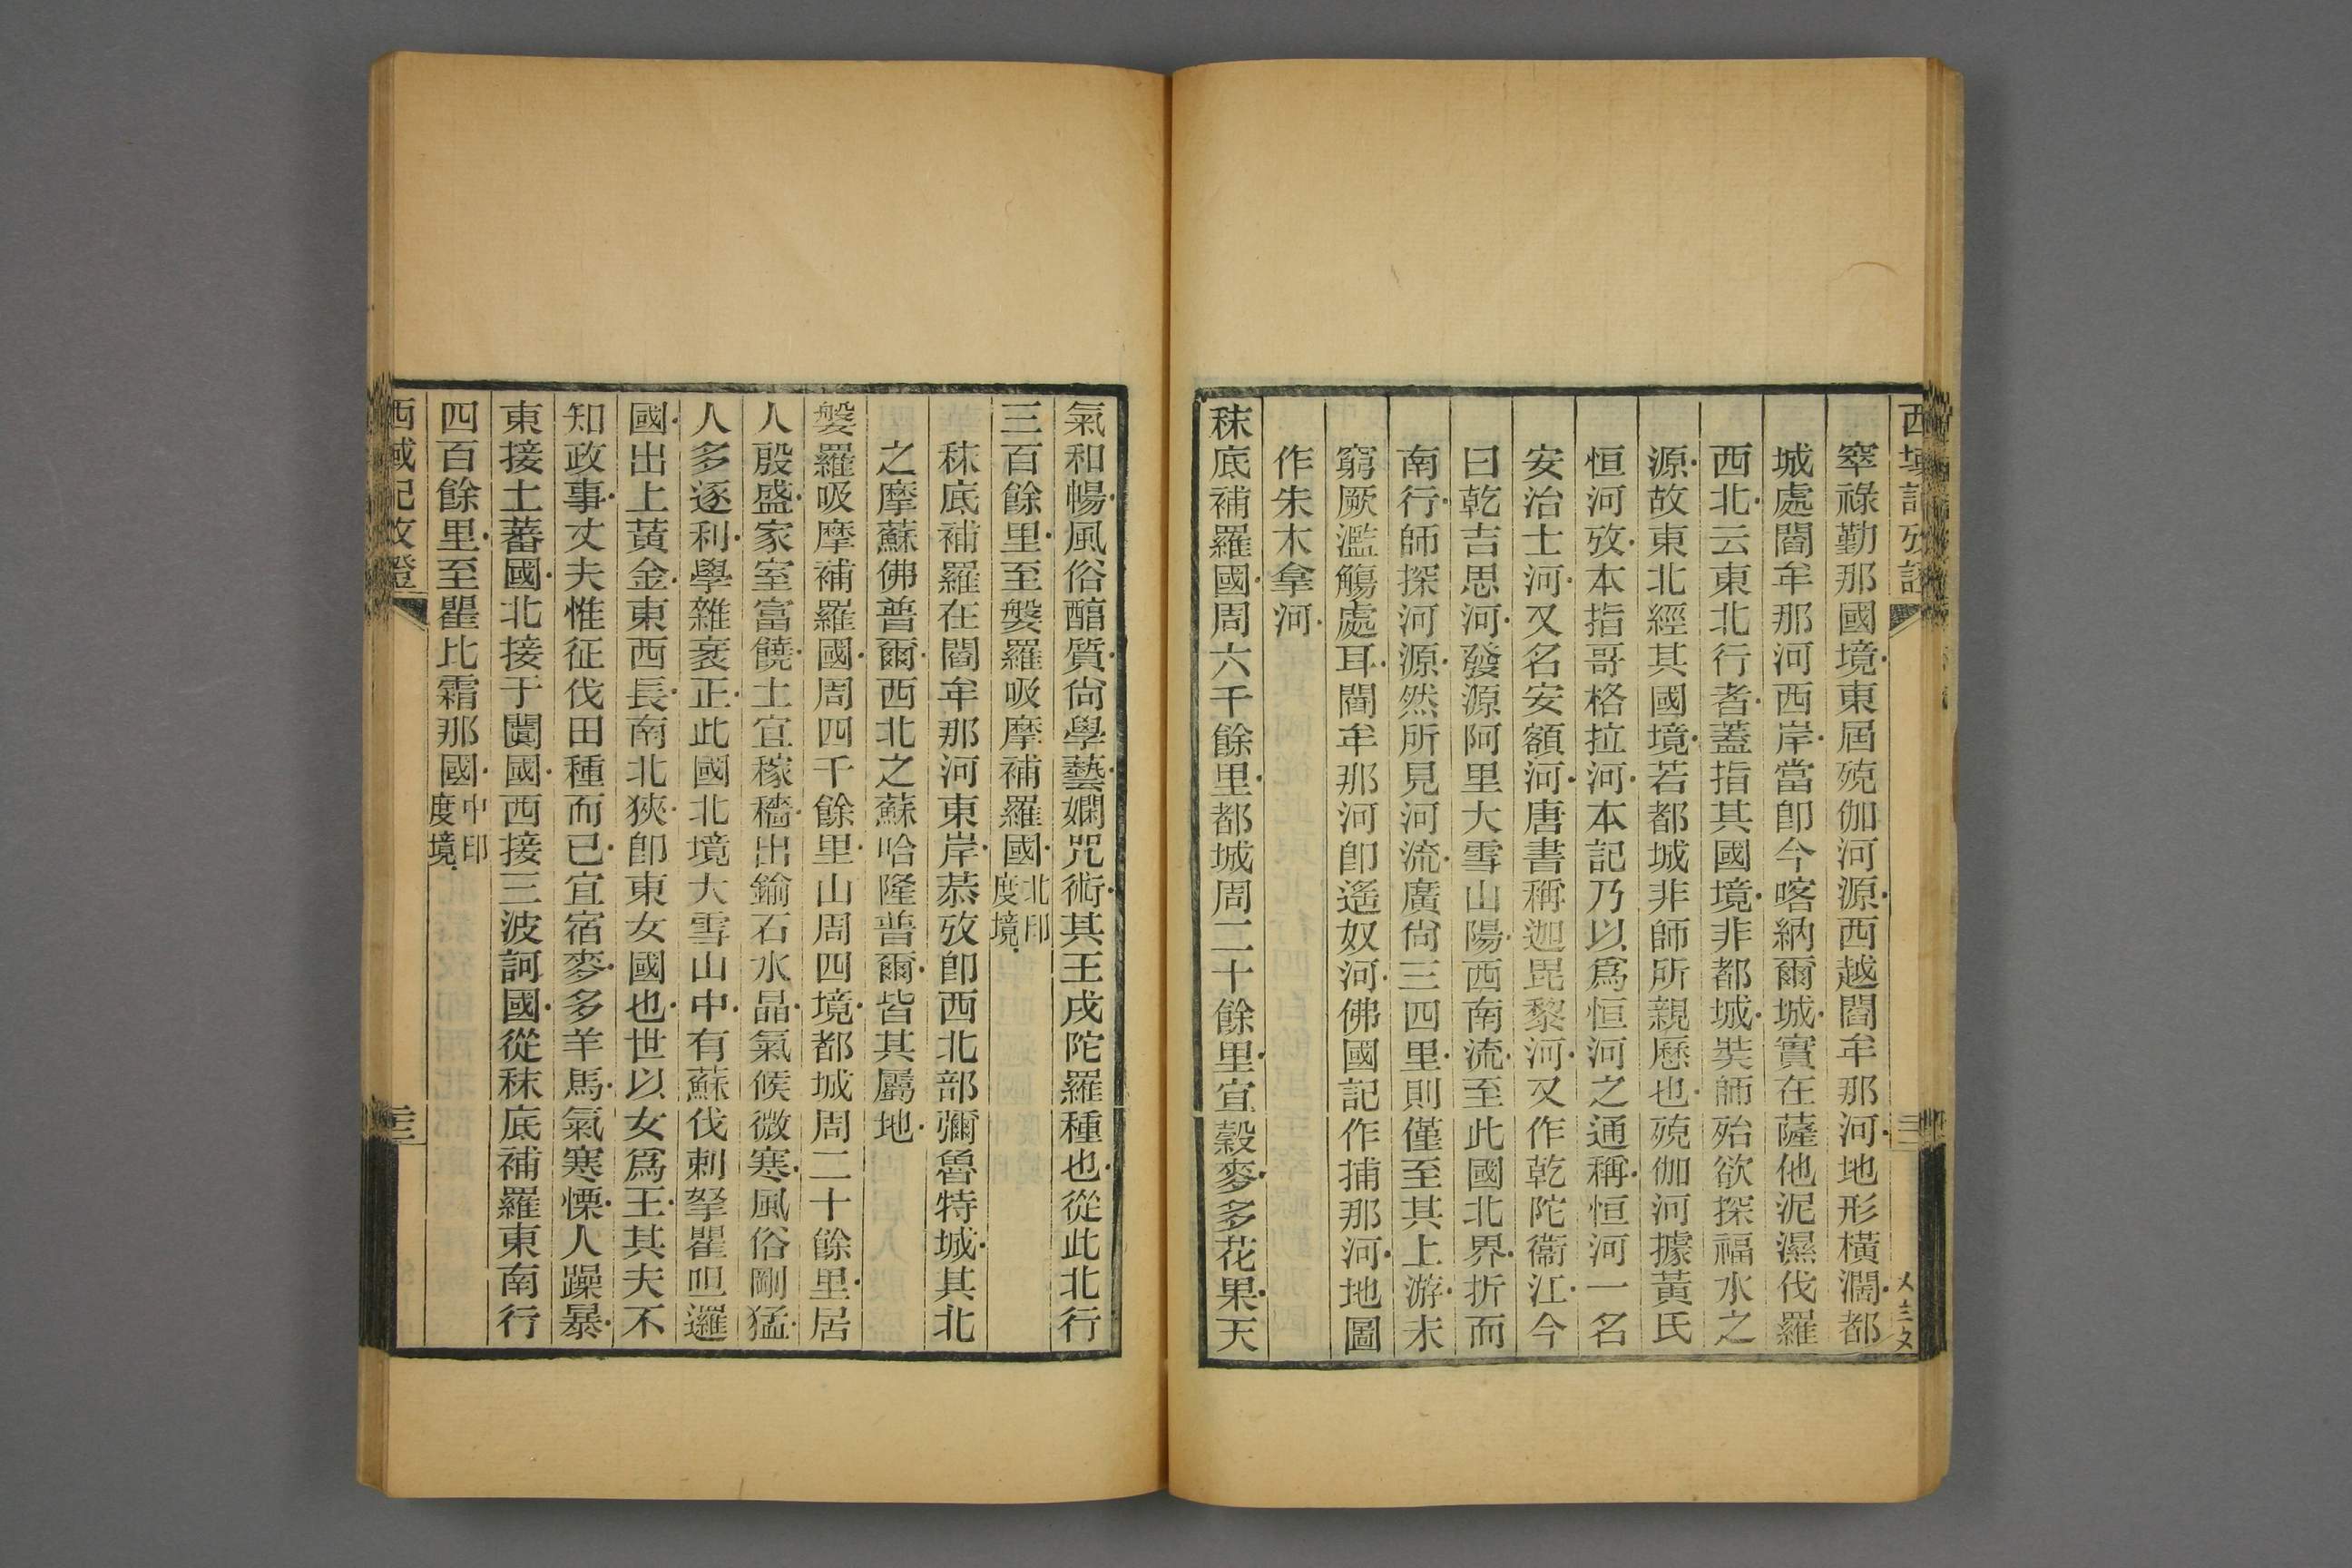 窣祿勤那國境東屆殑伽河源西越閻牟那河地形橫濶都
城處閻牟那河西岸當卽今喀納爾城實在薩他泥濕伐羅
西北云東北行者蓋指其國境非都城奘師殆欲探福水之
源故東北經其國境若都城非師所親歷也殑伽河據黃氏
恒河攷本指哥格拉河本記乃以爲恒河之通稱恒河一名
安治士河又名安額河唐書稱迦毘黎河又作乾陀衞江今
曰乾吉思河發源阿里大雪山陽西南流至此國北界折而
南行師探河源然所見河流廣尙三四里則僅至其上游未
窮厥濫觴處耳閻牟那河卽遙奴河佛國記作捕那河地圖
作朱木拿河
秣底補羅國周六千餘里都城周二十餘里宜穀麥多花果天
氣和暢風俗醕質尙學藝嫻咒術其王戌陀羅種也從此北行
三百餘里至婺羅吸摩補羅國北印度境
秣底補羅在閻牟那河東岸恭攷卽西北部彌魯特城其北
之摩蘇佛普爾西北之蘇哈隆普爾皆其屬地
婺羅吸摩補羅國周四千餘里山周四境都城周二十餘里居
人殷盛家室富饒土宜稼穡出鍮石水晶氣候微寒風俗剛猛
人多逐利學雜衺正此國北境大雪山中有蘇伐剌拏瞿呾邏
國出上黃金東西長南北狹卽東女國也世以女爲王其夫不
知政事丈夫惟征伐田種而已宜宿麥多羊馬氣寒慄人躁暴
東接土蕃國北接于闐國西接三波訶國從秣底補羅東南行
四百餘里至瞿比霜那國中印度境
西域記攷證 三